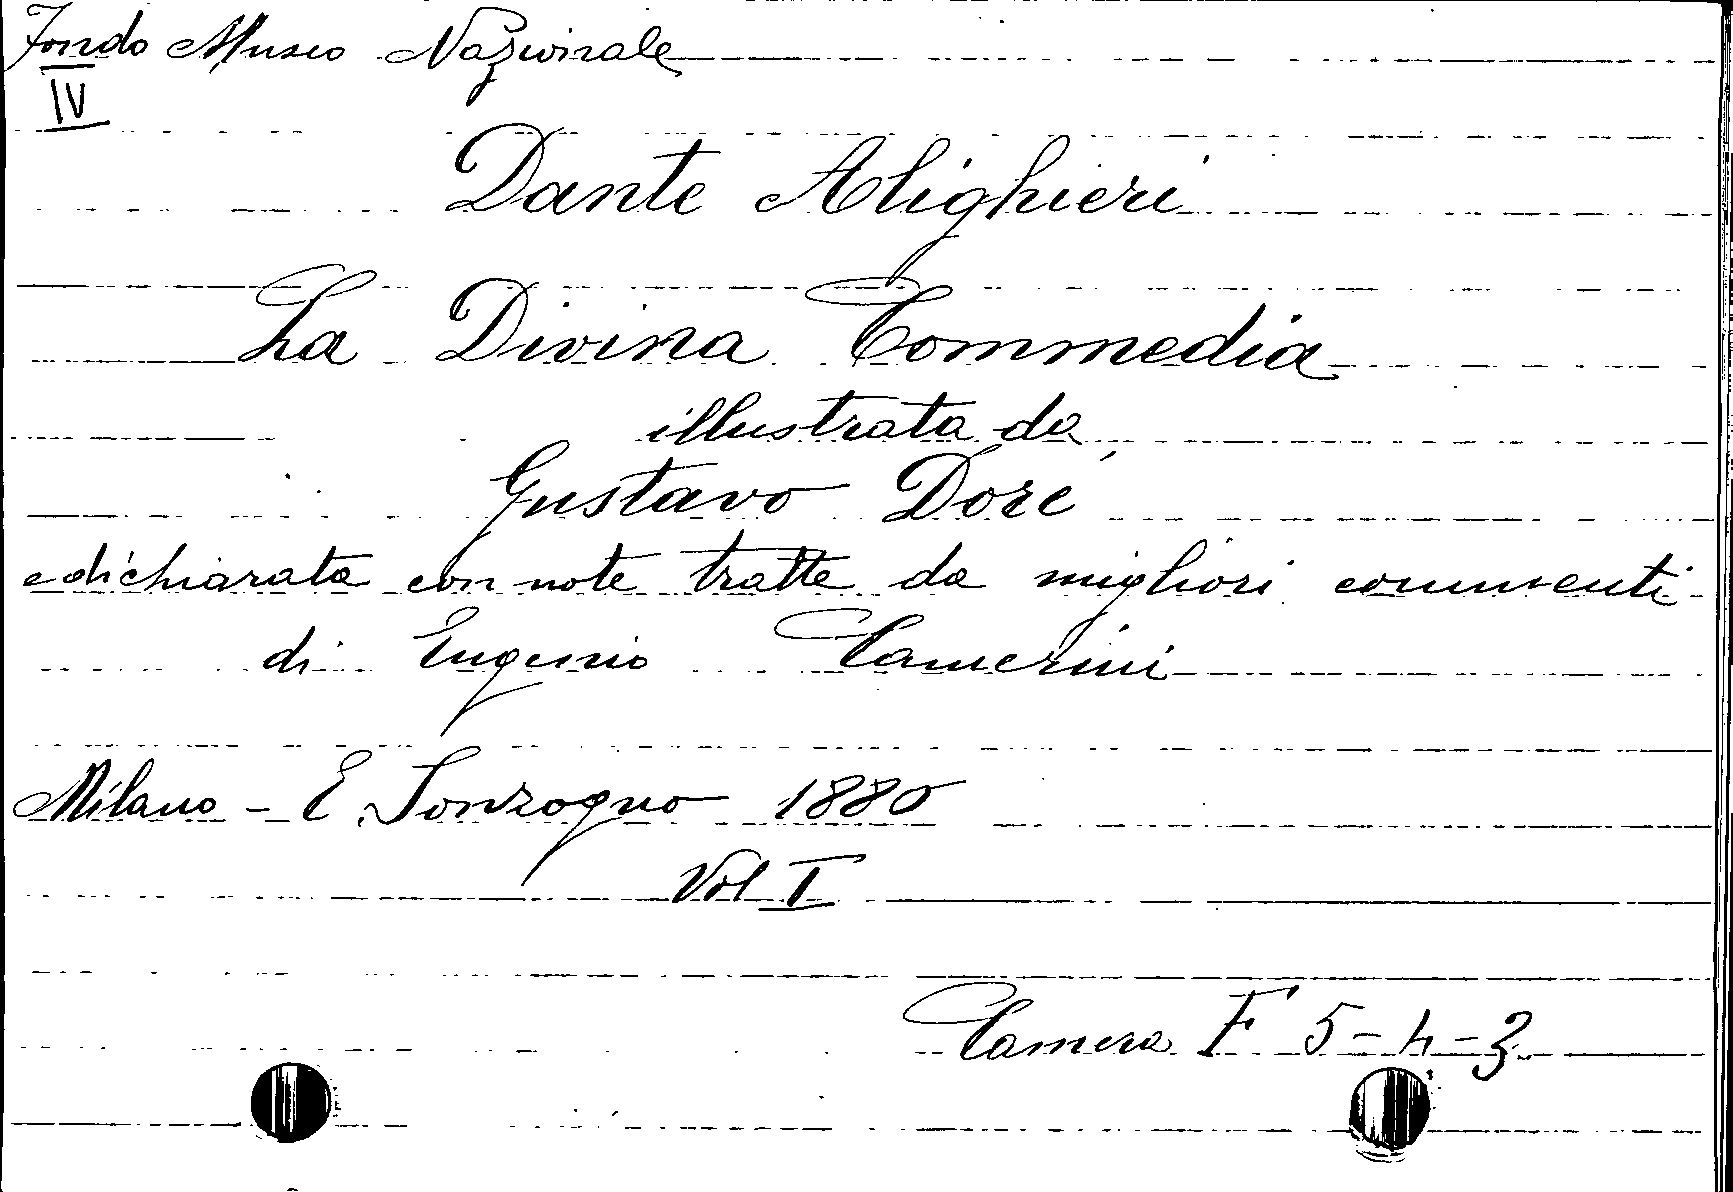 Fondo Museo Nazionale
IV
Dante Alighieri
La Divina Commedia
illustrata da
Gustavo Doré
e dichiarata con note tratte da migliori commenti
di Eugenio Camerini
Milano - E Sonzogno 1880
Vol I
Camera F 5-4-3